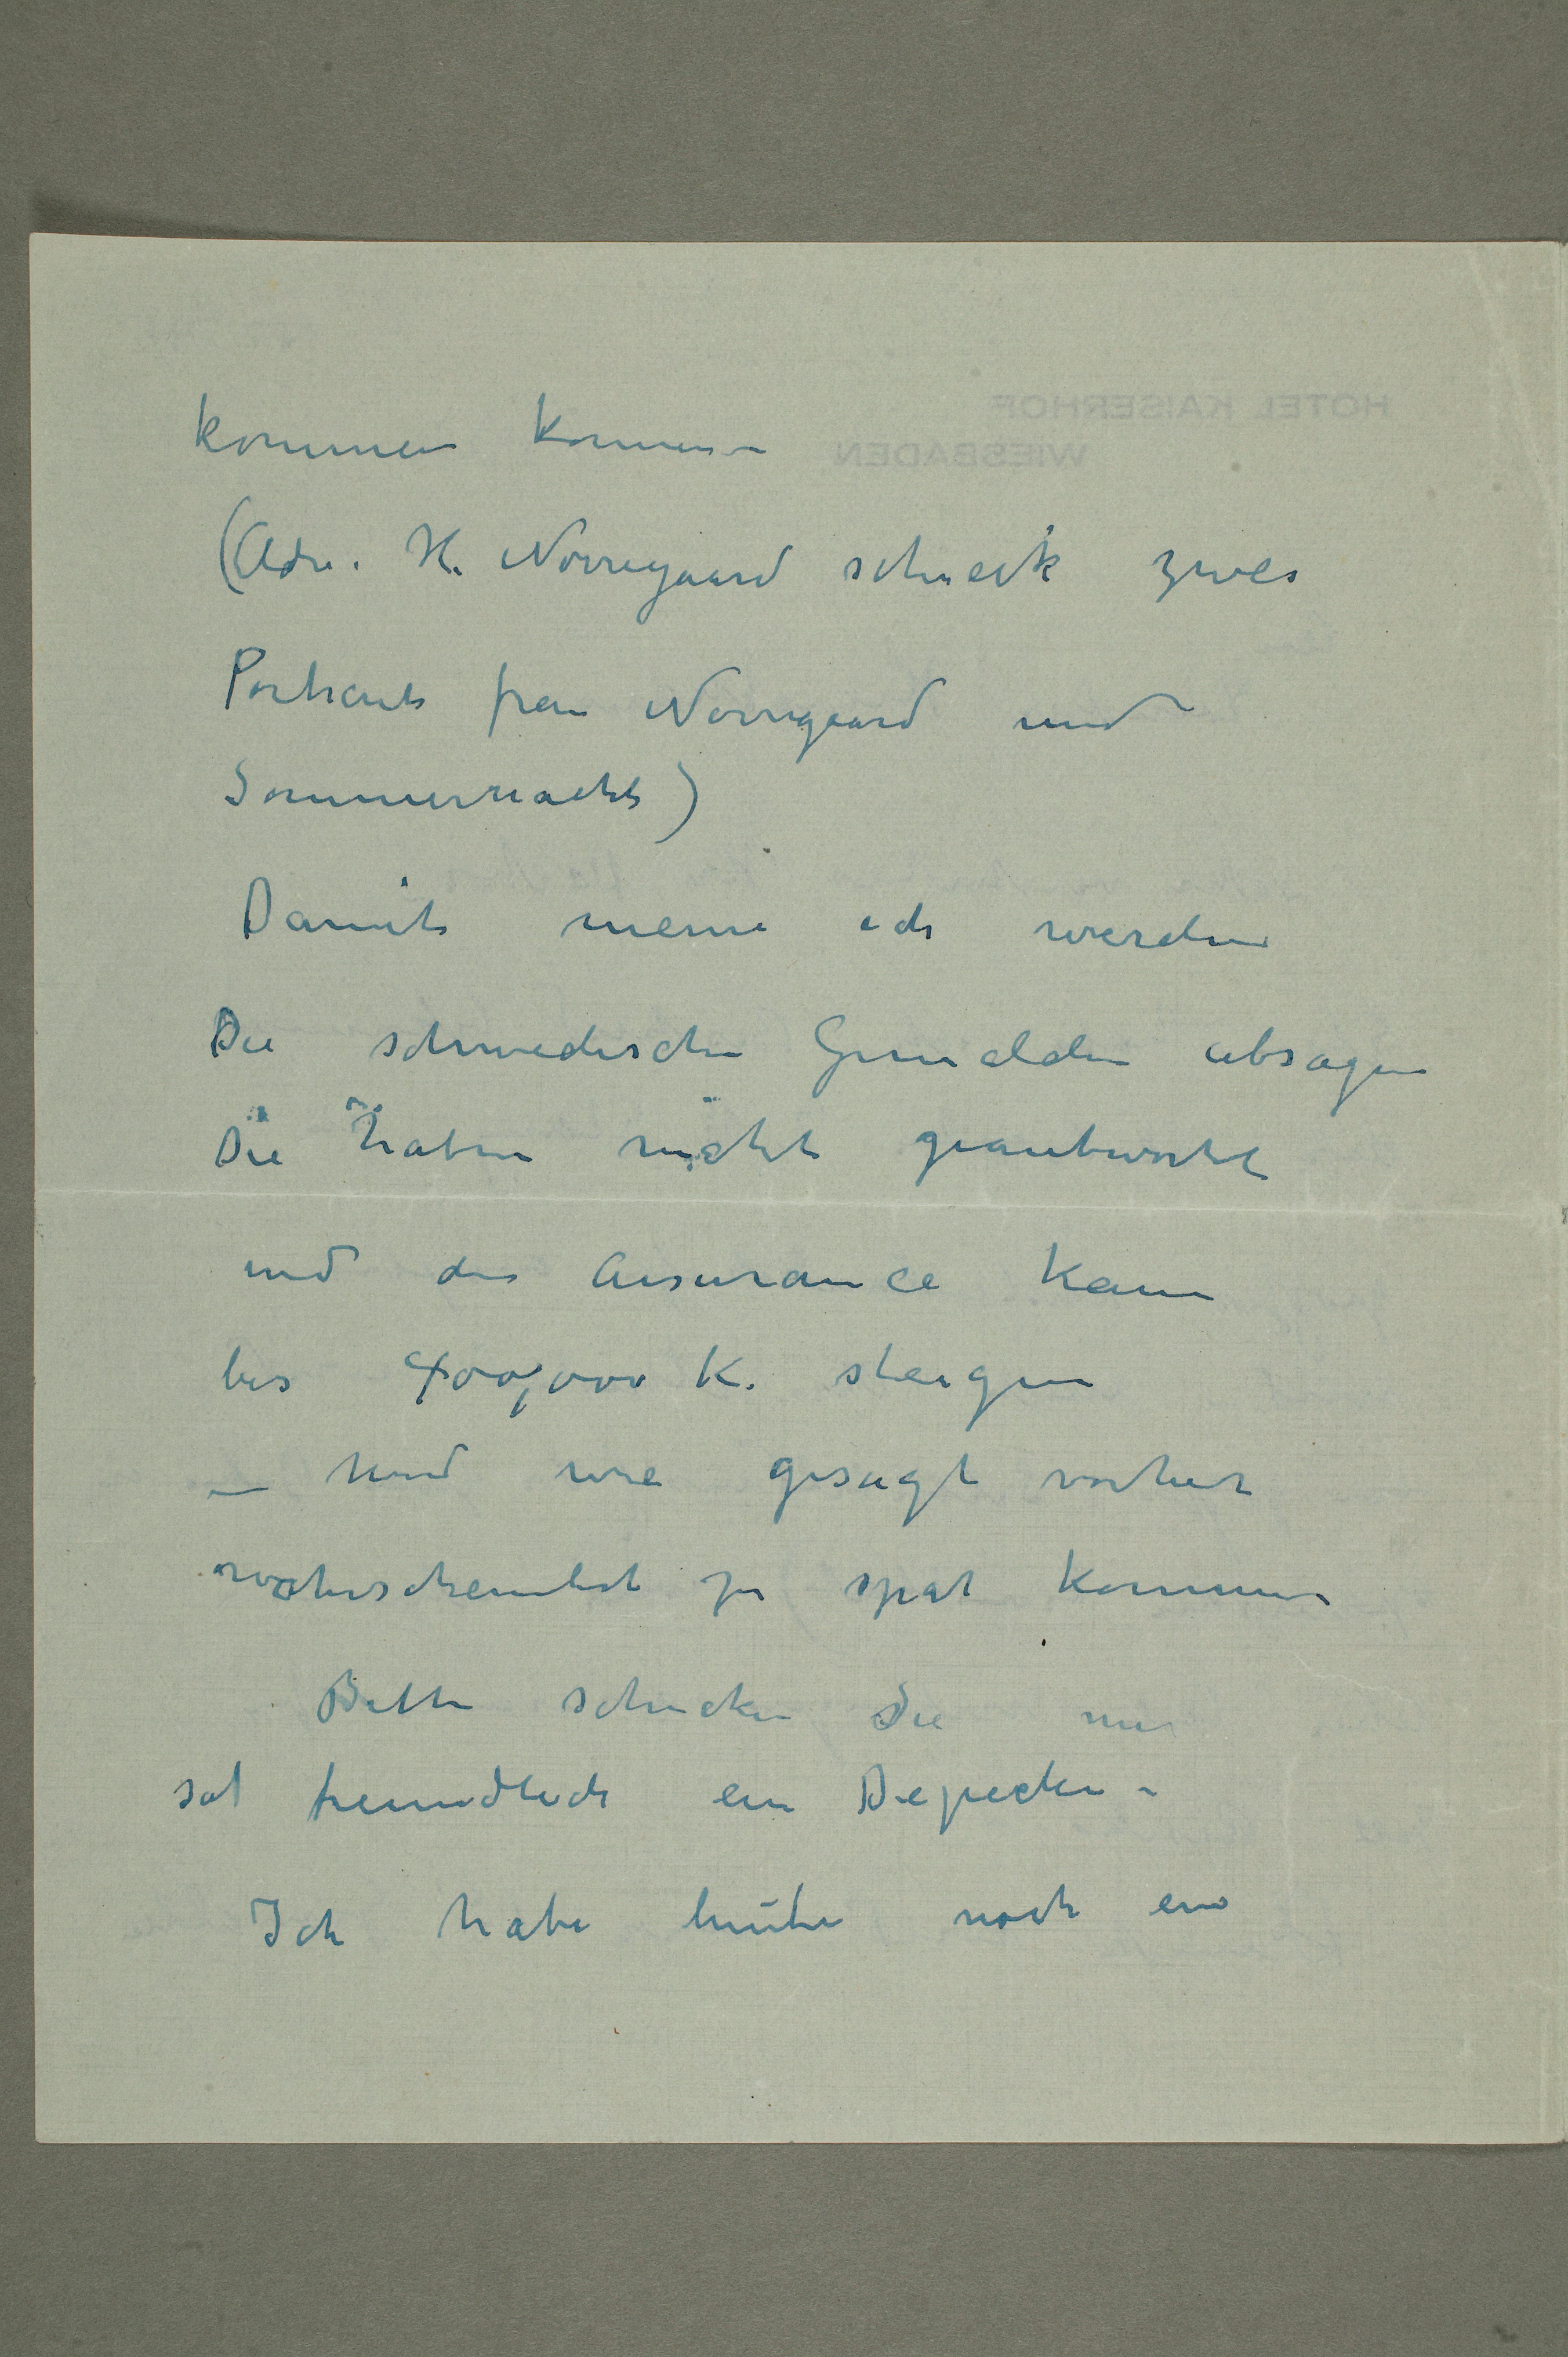 kommen konnen –
(Adr. H. Nørregaard schieck zwei
Portraits frau Nørregaard und
Sommernacht)
Damit meine ich werden
Die schwedische Gemälden absagen
Die haben nicht geantwortet
und die Assurance kann
bis 400,000 K. steigen
– und wie gesagt vorher
wahrscheinlich zu spät kommen
Bitte schicken Sie mir
so freundlich ein Depechen –
Ich habe heute noch ein
HOTEL KAISERHOF
WIESBADEN